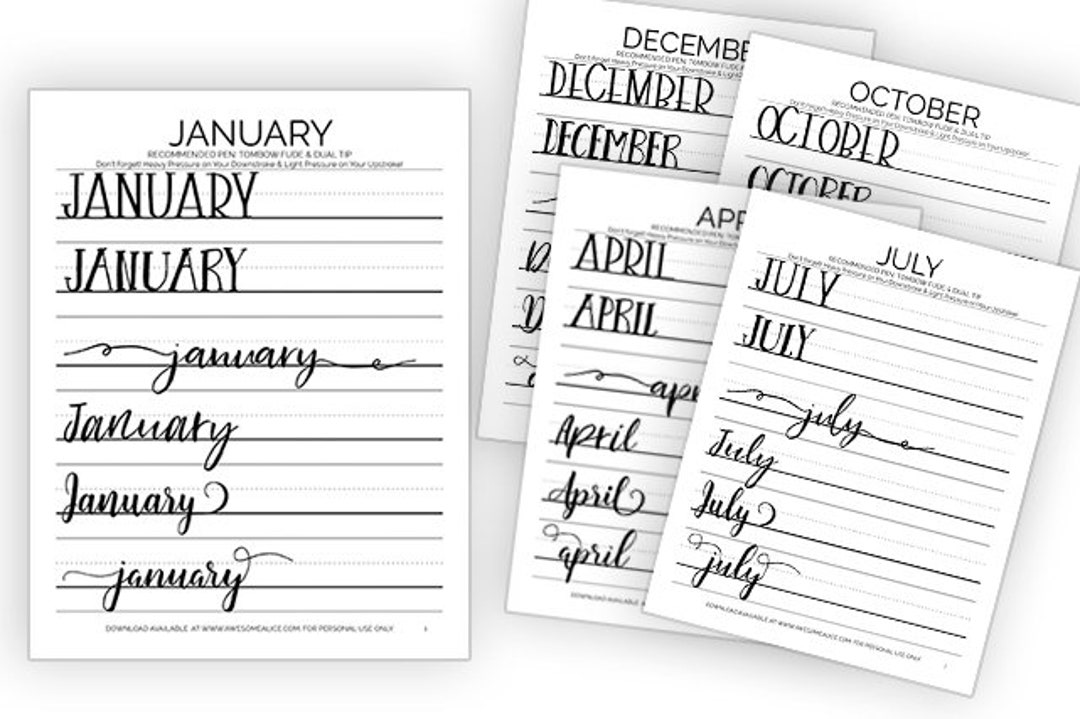 JANUARY
RECOMMENDED PEN: TOMBOW FUDE & DUAL TIP
Don't forget! Heavy Pressure on Your Downstroke & Light Pressure on Your Upstroke!
JANUARY
JANUARY
january
January
January
january
DOWNLOAD AVAILABLE AT WWW.AWESOMEALICE.COM. FOR PERSONAL USE ONLY 1
DECEMBE
RECOMMENDED PEN: TOMBOW FUDE
Don't forget! Heavy Pressure on Your Downstroke & Light
DECEMBER
DECEMBER
OCTOBER
RECOMMENDED PEN: TOMBOW FUDE & DUAL TIP
Don't forget! Heavy Pressure on Your Downstroke & Light Pressure on Your Upstroke!
OCTOBER
OCTOBER
APR
RECOMMENDED PEN: TOMB
Don't forget! Heavy Pressure on Your Downst
APRIL
APRIL
apr
April
April
april
DOWNLOAD AVAILABLE
JULY
RECOMMENDED PEN: TOMBOW FUDE & DUAL TIP
Don't forget! Heavy Pressure on Your Downstroke & Light Pressure on Your Upstroke!
JULY
JULY
july
July
July
july
DOWNLOAD AVAILABLE AT WWW.AWESOMEALICE.COM. FOR PERSONAL USE ONLY